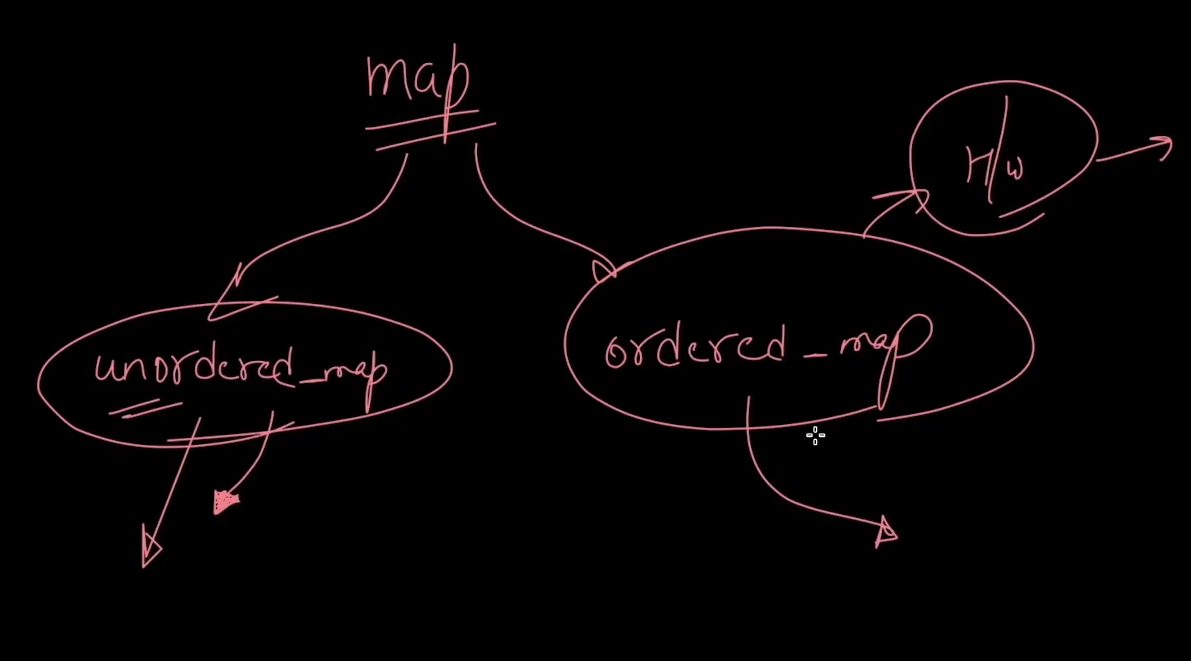 map
H/W
unordered_map
ordered_map